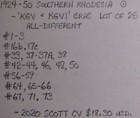 1924-50 SOUTHERN RHODESIA
- 'KGV - KGVI' ERAS LOT OF 25
ALL-DIFFERENT
#1-3
#16b, 17c
#33, 37-37A, 38
#42-44, 46, 49, 50
#56-57
#64, 65-66
#67, 71, 73
- 2020 SCOTT CV $12.30 USD